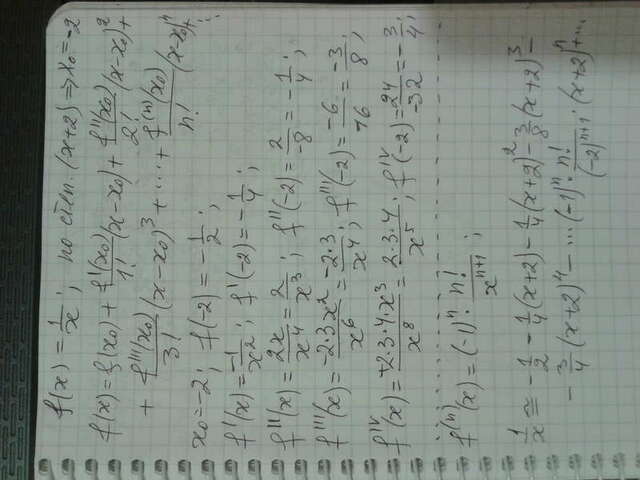 f(x) = 1/x ; по степ. (x+2) ⇒ x₀ = -2
f(x) = f(x₀) + f'(x₀)/1! (x-x₀) + f''(x₀)/2! (x-x₀)² +
+ f'''(x₀)/3! (x-x₀)³ + ... + f⁽ⁿ⁾(x₀)/n! (x-x₀)ⁿ + ...
x₀ = -2; f(-2) = -1/2;
f'(x) = -1/x²; f'(-2) = -1/4;
f''(x) = 2x/x⁴ = 2/x³; f''(-2) = 2/-8 = -1/4;
f'''(x) = -2·3x²/x⁶ = -2·3/x⁴; f'''(-2) = -6/16 = -3/8;
f^IV(x) = -2·3·4·x³/x⁸ = 2·3·4/x⁵; f^IV(-2) = 24/-32 = -3/4;
f⁽ⁿ⁾(x) = (-1)ⁿ · n!/xⁿ⁺¹;
1/x ≅ -1/2 - 1/4(x+2) - 1/4(x+2)² - 3/8(x+2)³ -
- 3/4(x+2)⁴ - ... (-1)ⁿ · n!/(-2)ⁿ⁺¹ · (x+2)ⁿ + ...